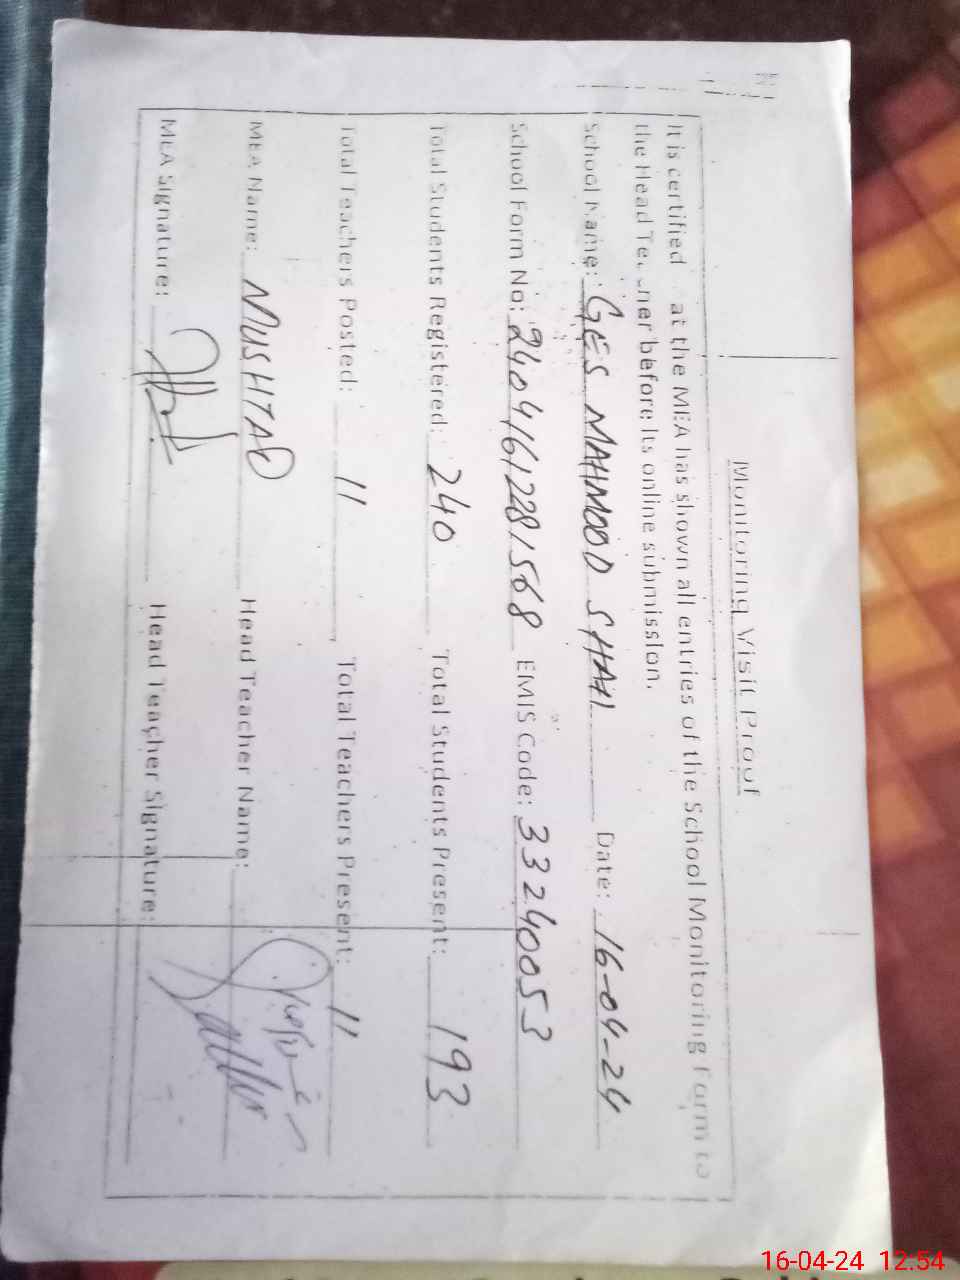 Monitoring Visit Proof
It is certified at the MEA has shown all entries of the School Monitoring Form to
the Head before its online submission.
School Name: GES MAHMOOD SHAH Date: 16-04-24
School Form No: 24041612281568 EMIS Code: 33240053
Total Students Registered: 240 Total Students Present: 193
Total Teachers Posted: 11 Total Teachers Present: 11
MEA Name: MUSHTAQ Head Teacher Name:
MEA Signature: Head Teacher Signature:
16-04-24 12:54